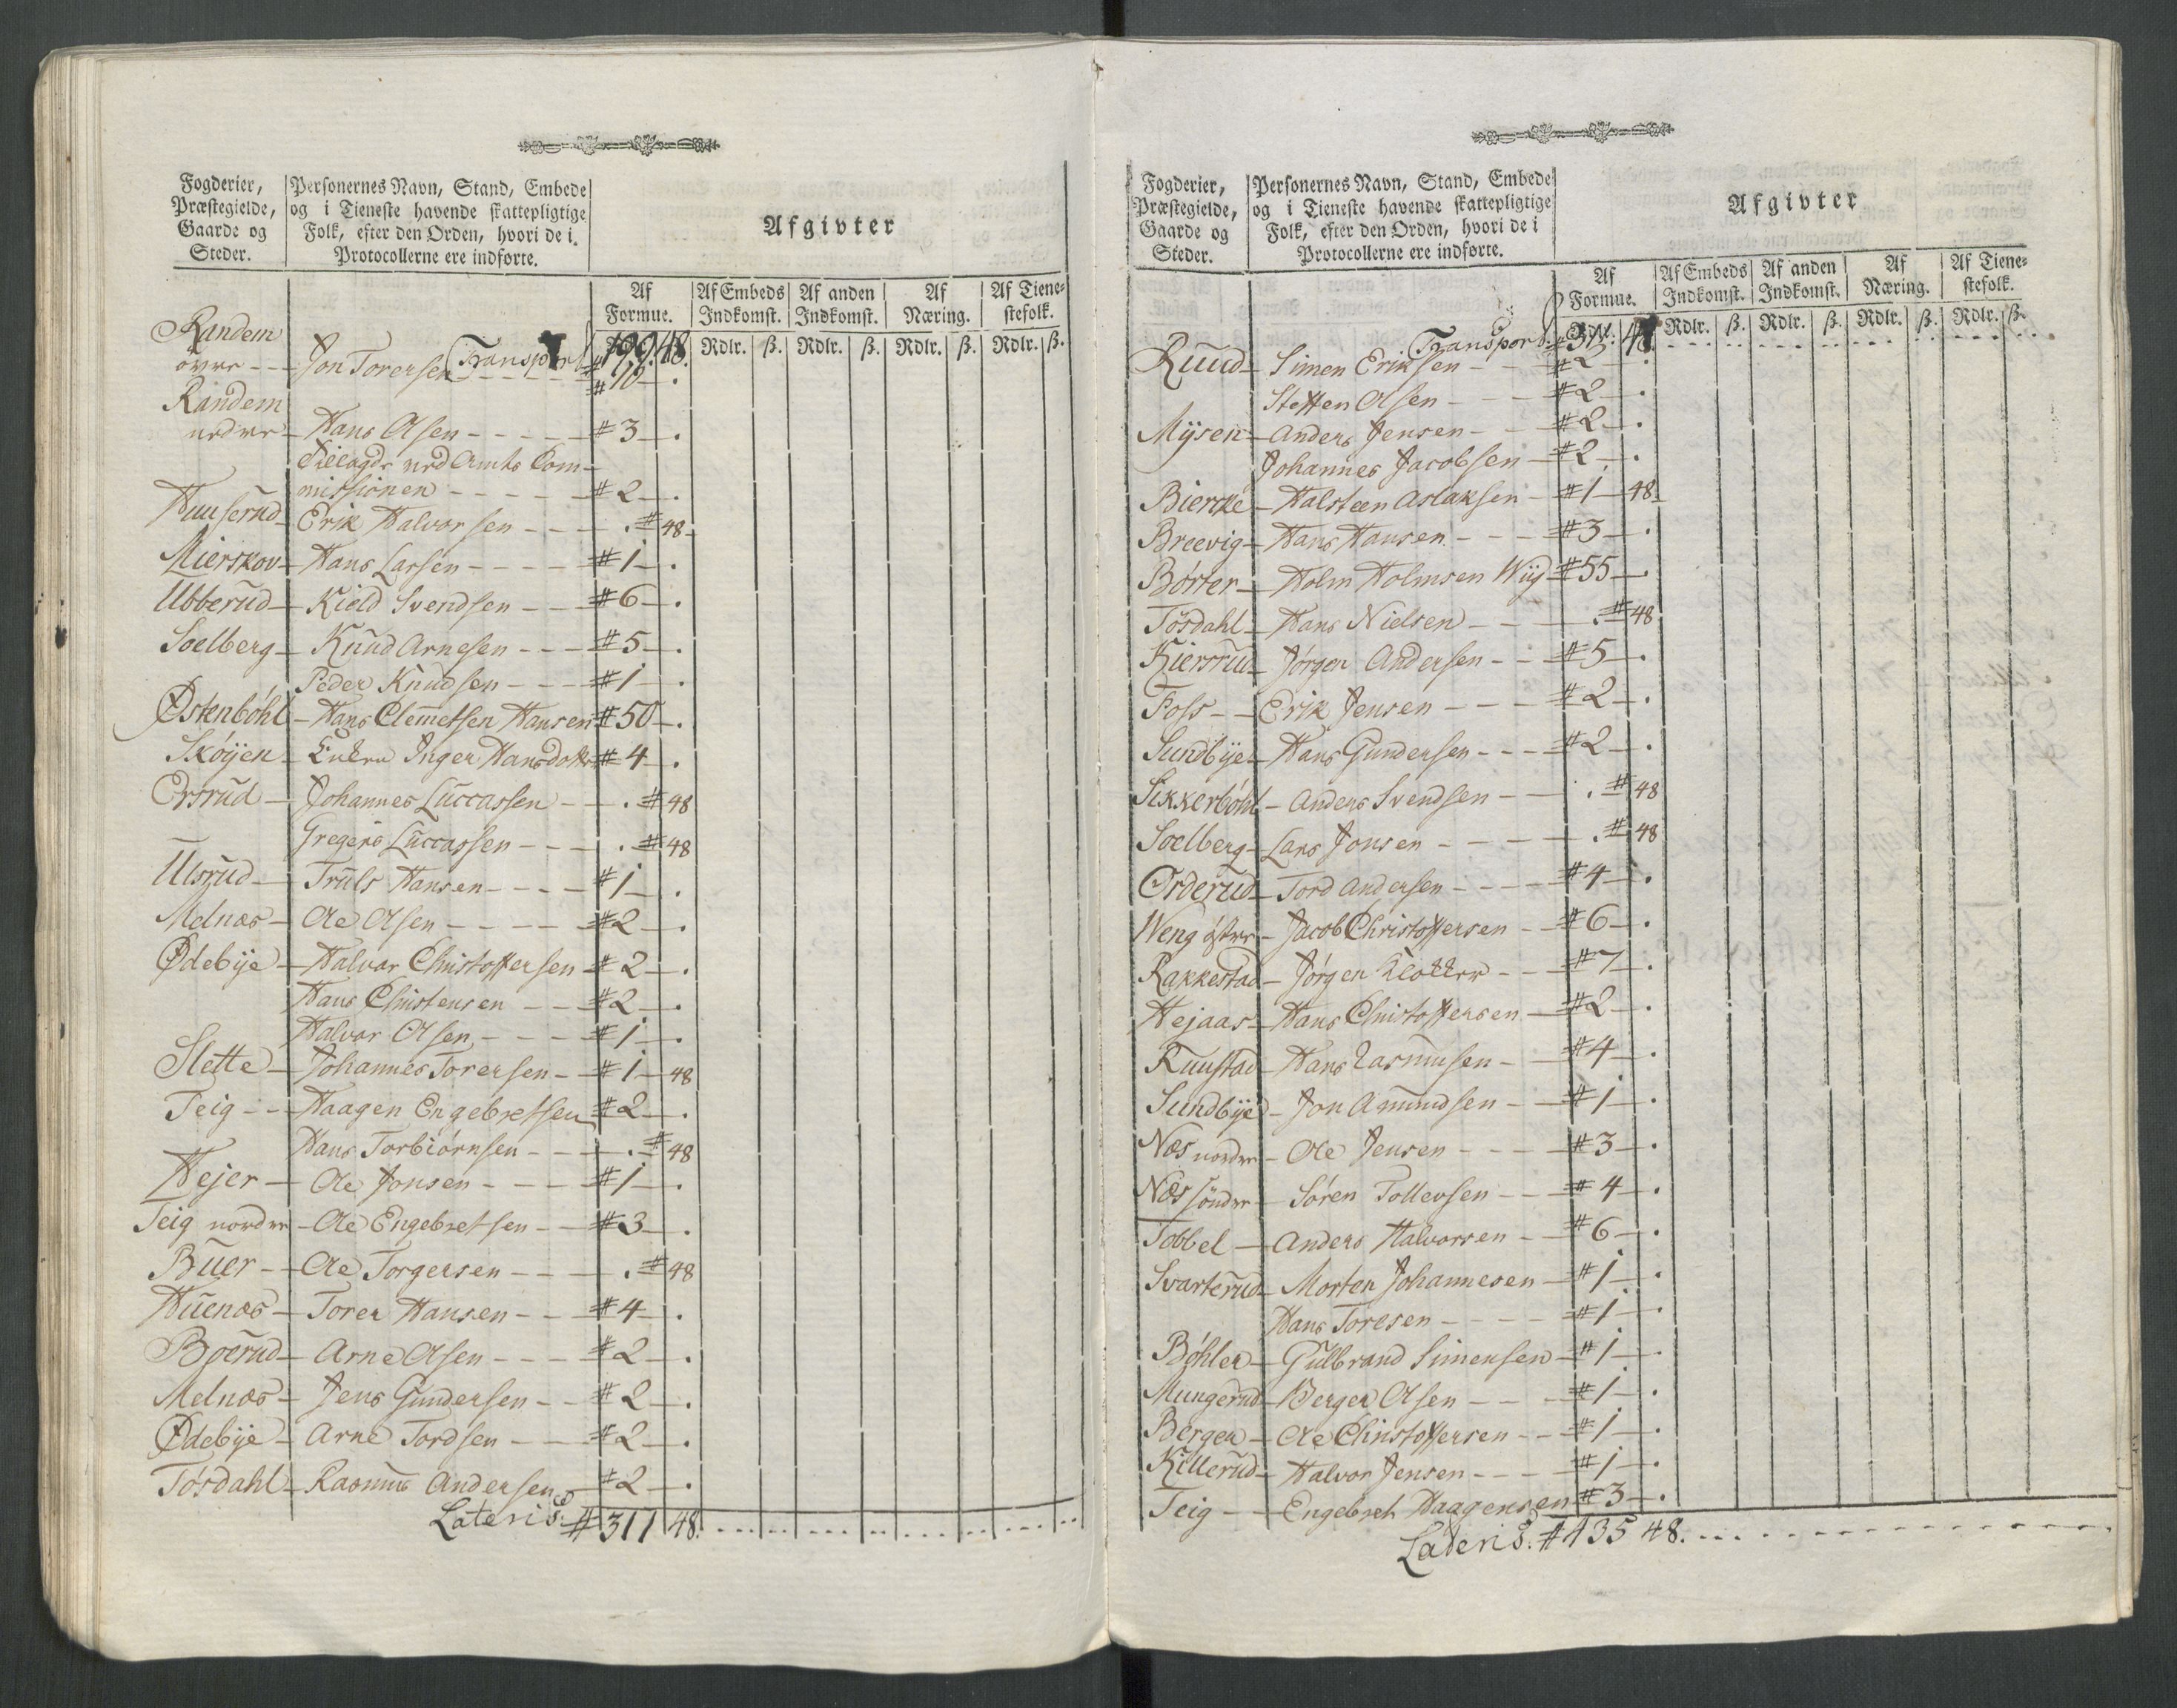 Fogderier,
Præstegielde,
Gaarde og
Steder.
Personernes Navn, Stand, Embede
og i Tieneste havende skattepligtige
Folk, efter den Orden, hvori de i
Protocollerne ere indførte.
Afgivter
Af Formue. Af Embeds Indkomst. Af anden Indkomst. Af Næring. Af Tienestefolk.
Rdlr. ß. Rdlr. ß. Rdlr. ß. Rdlr. ß.
Transport # 199 48.
Randem
øvre - - Jon Torersen - - - # 10 - .
Randem
nedre - Hans Olsen - - - - # 3 - .
Tillagde ved Amts Com-
missionen - - - - - # 2 - .
Huuserud - Erik Halvorsen - - - . # 48 -
Mierskov - Hans Larsen - - - - # 1 - .
Ubberud - Kield Svendsen - - - # 6 - .
Soelberg - Knud Arnesen - - - # 5 - .
Peder Knudsen - - - # 1 - .
Østenbøhl - Hans Clemetsen Hansen # 50 - .
Skøyen - Enken Inger Hansdotter # 4 - .
Ersrud - Johannes Luccassen - - . # 48
Gregers Luccassen - - - . # 48
Ulsrud - Truls Hansen - - - - # 1 - .
Melnæs - Ole Olsen - - - - # 2 - .
Ødebye - Halvor Christoffersen # 2 - .
Hans Christensen - - # 2 - .
Halvor Olsen - - - # 1 - .
Slette - Johannes Torersen - # 1 - 48
Teig - - Haagen Engebretsen # 2 - .
Hans Torbiørnsen - - - . # 48
Hejer - Ole Jonsen - - - - # 1 - .
Teig nordre - Ole Engebretsen - - # 3 - .
Buer - - Ole Torgersen - - - . # 48
Huenæs - Torer Hansen - - # 4 - .
Boerud - Arne Olsen - - - # 2 - .
Melnæs - Jens Gundersen - - # 2 - .
Ødebye - Arne Tordsen - - - # 2 - .
Tøsdahl - Rasmus Andersen - # 2 - .
Lateris # 311 48.
Fogderier,
Præstegielde,
Gaarde og
Steder.
Personernes Navn, Stand, Embede
og i Tieneste havende skattepligtige
Folk, efter den Orden, hvori de i
Protocollerne ere indførte.
Afgivter
Af Formue. Af Embeds Indkomst. Af anden Indkomst. Af Næring. Af Tienestefolk.
Rdlr. ß. Rdlr. ß. Rdlr. ß. Rdlr. ß.
Transport # 311. 48
Ruud - Simen Eriksen - - # 2 - .
Steffen Olsen - - - # 2 - .
Mysen - Anders Jensen - - # 2 - .
Johannes Jacobsen - # 2 - .
Biercke - Halsteen Aslaksen - # 1 - 48 -
Breevig - Hans Hansen - - - # 3 - .
Børter - Holm Holmsen Wiy # 55 - .
Tosdahl - Hans Nielsen - - - . # 48
Kiersrud - Jørgen Andersen - - # 5 - .
Foss - - Erik Jensen - - - # 2 - .
Sundbye - Hans Gundersen - - - # 2 - .
Sikkerbøhl - Anders Svendsen - - . # 48
Soelberg - Lars Jonsen - - - - . # 48
Orderud - Tord Andersen - - - # 4 - .
Weng østre - Jacob Christoffersen - # 6 - .
Rakkestad - Jørgen Klokker - - # 7 - .
Hejaas - Hans Christoffersen - # 2 - .
Ruustad - Hans Rasmusen - # 4 - .
Sundbye - Jon Amundsen - - # 1 - .
Næs nordre - Ole Jensen - - - # 3 - .
Næs søndre - Søren Tollevsen - - # 4 - .
Tobbel - Anders Halvorsen - # 6 - .
Svarterud - Morten Johannesen - # 1 - .
Hans Toresen - - - # 1 - .
Bøhler - Gulbrand Simensen - # 1 - .
Mungerud - Berger Olsen - - - # 1 - .
Berger - Ole Christoffersen - - # 1 - .
Killerud - Halvor Jensen - - - # 1 - .
Teig - - Engebret Haagensen # 3 - .
Lateris. # 435 48.